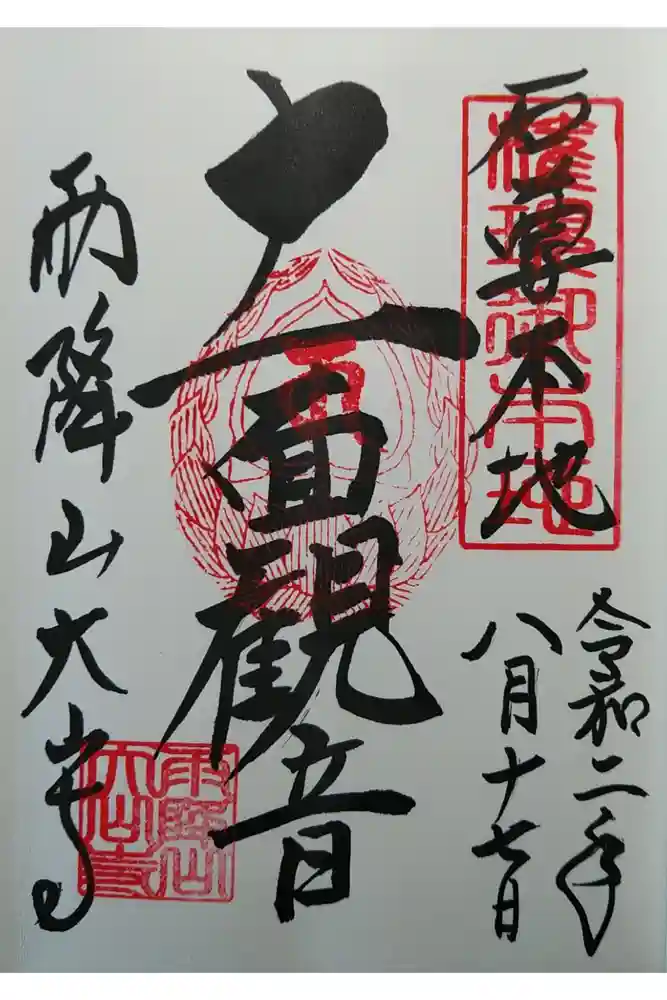 石尊本地
権現御本地
令和二年
八月十七日
十一面観音
雨降山大山寺
雨降山
大山寺